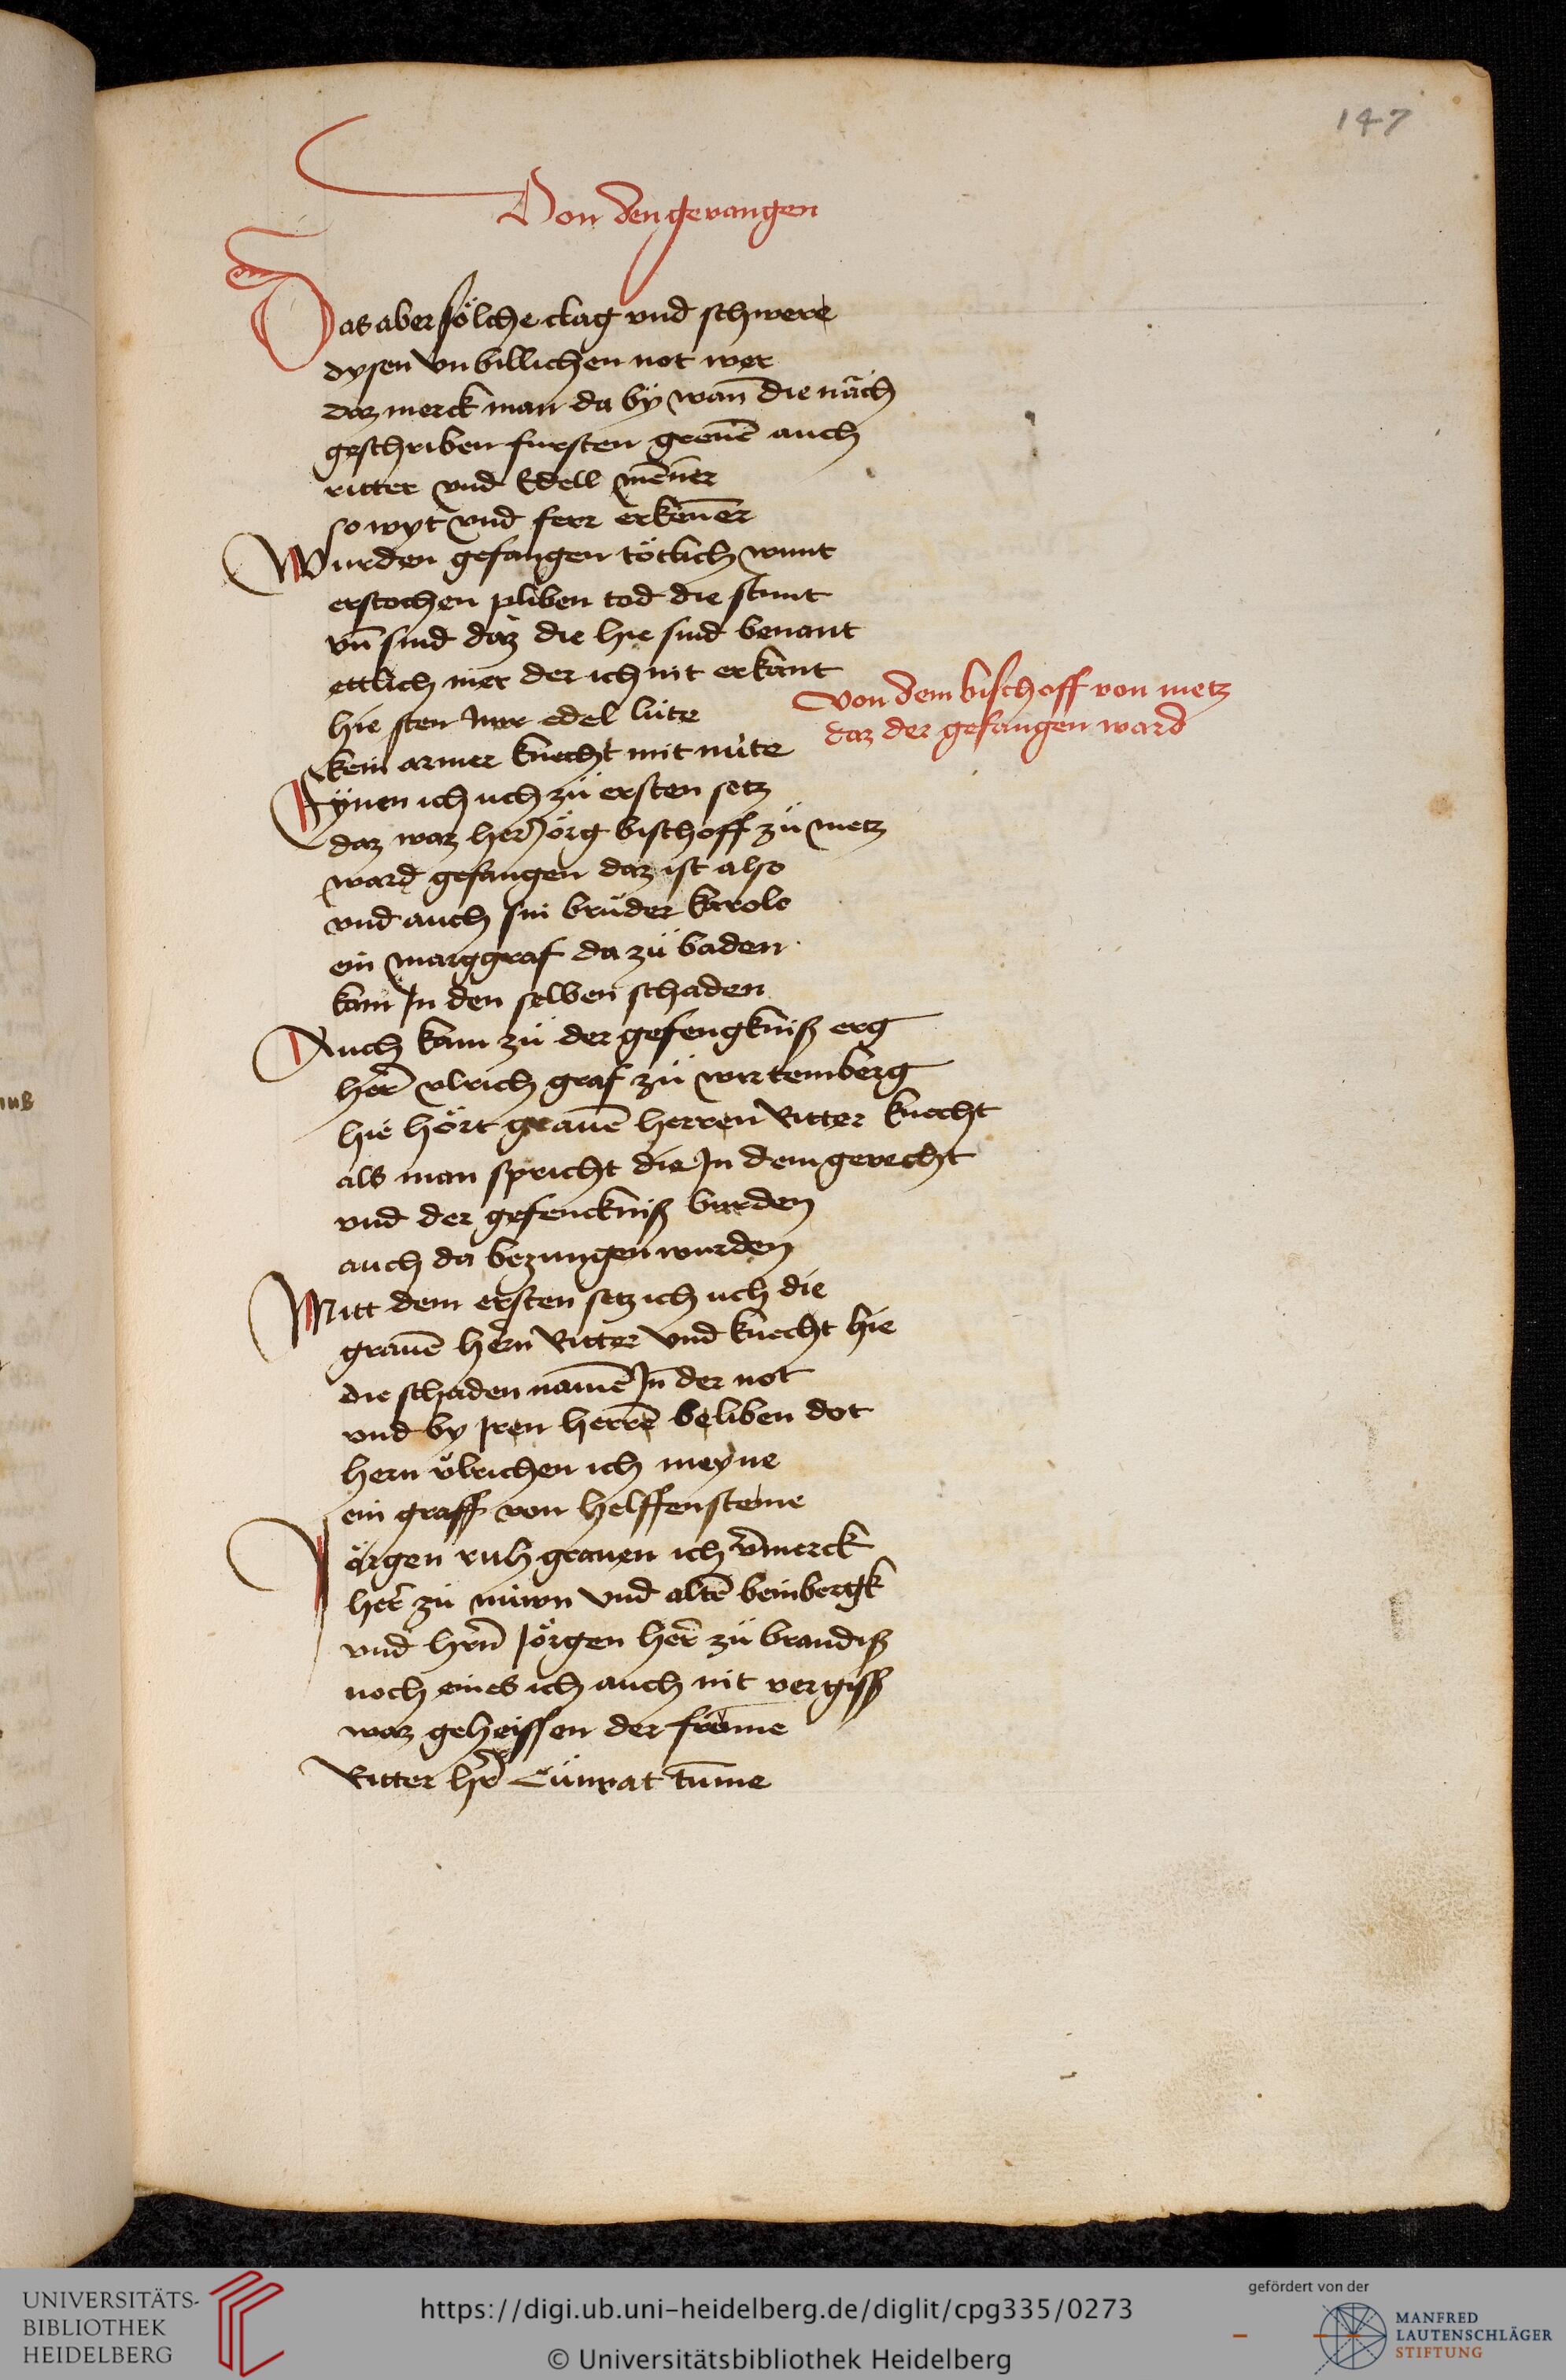 147
Von den gevangen
Das aber sölche clag vnd schwere
dysen vnbillichen not wer
daz merck man da bÿ wan̄ die nach
geschriben fursten greuē auch
ritter vnd Edell men̄er
so wyt vnd ferr erken̄er
Wurden gefangen tötlich wunt
erstochen pliben tod die stunt
vn̄ sind daz die hie sind benant
ettlich mer der ich nit erkant
hie sten Nwr edel lüte
kein armer knecht mit nüte
von dem bischoff von metz
daz der gefangen ward
Aÿnen ich uch zü ersten setz
daz waz her Jörg bischoff zü metz
ward gefangen daz ist also
vnd auch sin brüder karolo
ein marggraf da zü baden
kam Jn den selben schaden
Auch kam zü der gefengkniß erg
her̄ vlrich graf zü wirtemberg
hie hört grauē herren Ritter knecht
als man spricht die Jn dem gerecht
vnd der gefenckniß burden
auch da bezungen wurden
Mitt dem ersten setz ich uch die
grauē hern Ritter vnd knecht hie
die schaden namē Jn der not
vnd by Jren herrē beliben dot
hern vͦlrichen ich meyne
ein graff von helffensteine
Jörgen ruhgrauen ich v̄merck
her̄ zü nüwn vnd altē beinbergk
vnd hrn̄ Jörgen her̄ zü brandiß
noch eines ich auch nit vergiß
waz geheissen der from̄e
Ritter hr̄ Cünrat tum̄e
UNIVERSITÄTS-
BIBLIOTHEK
HEIDELBERG
https://digi.ub.uni-heidelberg.de/diglit/cpg335/0273
© Universitätsbibliothek Heidelberg
gefördert von der
MANFRED
LAUTENSCHLÄGER
STIFTUNG